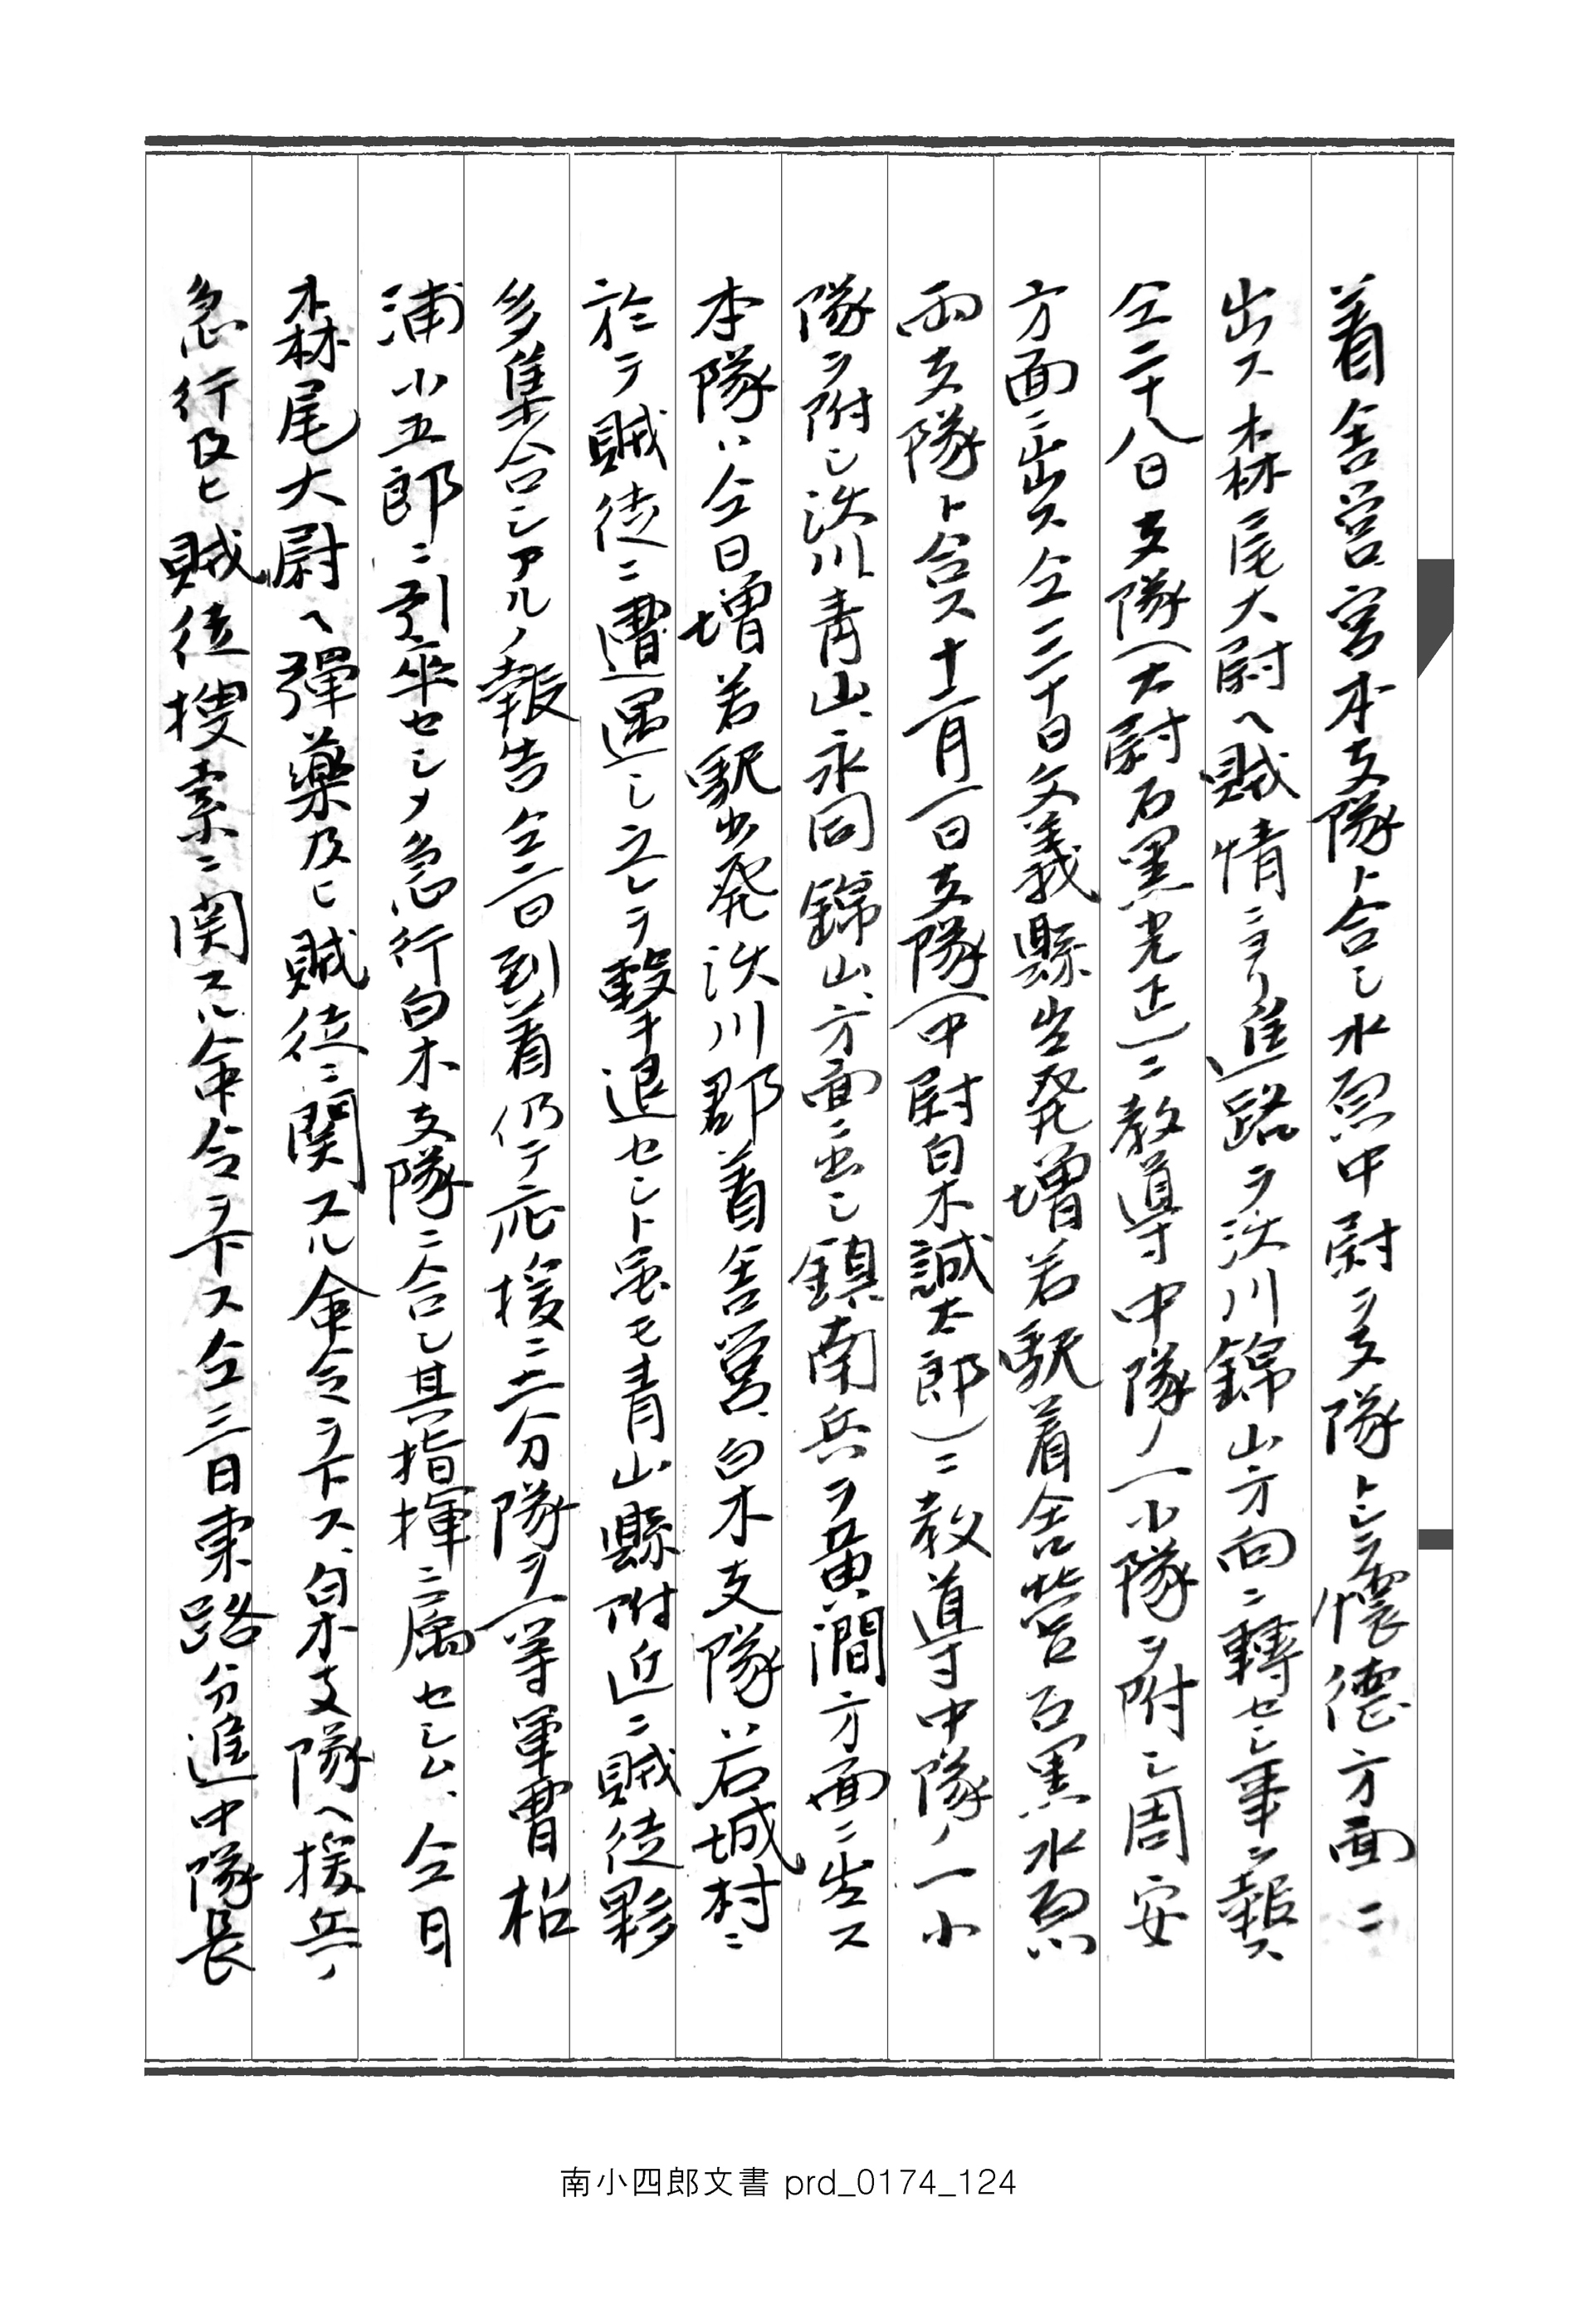 着舎営宮本支隊ト合シ水原中尉ヲ支隊トシテ懐德方面ニ
出ス森尾大尉ヘ賊情ニヨリ進路ヲ沃川錦山方向ニ轉セシ事ヲ報ス
仝二十八日支隊(大尉石黒光正)ニ教導中隊ノ一小隊ヲ附シ周安
方面ニ出ス仝三十日文義縣出発増若駅着舎営石黒水原
両支隊ト合ス十二月一日支隊(中尉白木誠太郎)ニ教導中隊ノ一小
隊ヲ附シ沃川、青山、永同、錦山、方面ニ出シ鎮南兵ヲ黄澗方面ニ出ス
本隊ハ仝日増若駅出発沃川郡着舎営、白木支隊ハ若城村ニ
於テ賊徒ニ遭遇シ之レヲ撃チ退セシト虽モ青山縣附近ニ賊徒夥
多集合シアルノ報告仝二日到着仍テ応援ニ二分隊ヲ一等軍曹松
浦小五郎ニ引率セシメ急行白木支隊ニ合シ其指揮ニ属セシム、仝日
森尾大尉ヘ彈薬及ヒ賊徒ニ関スル命令ヲ下ス、白木支隊ヘ援兵ノ
急行及ヒ賊徒搜索ニ関スル命令ヲ下ス仝三日東路分進中隊長
南小四郎文書 prd_0174_124